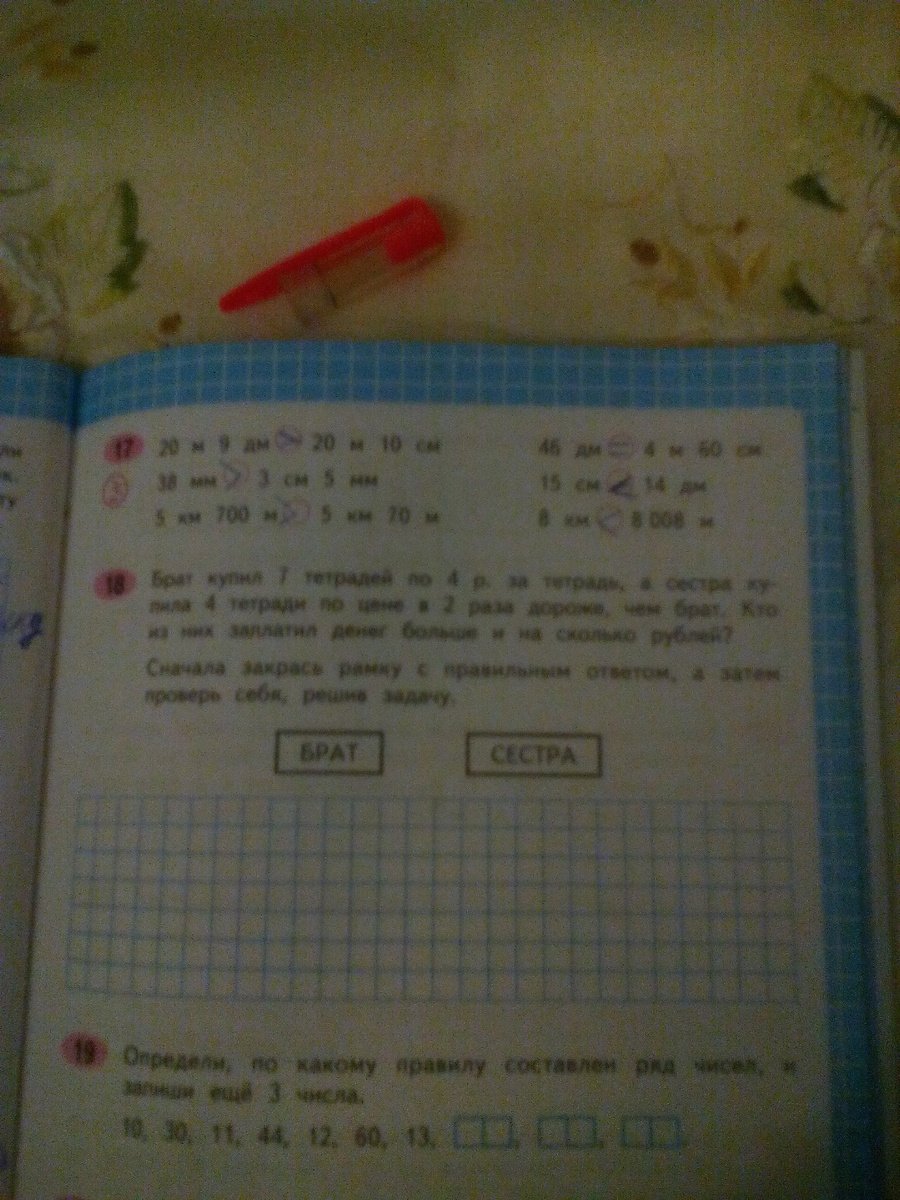 17 20 м 9 дм > 20 м 10 см 46 дм = 4 м 60 см
38 мм > 3 см 5 мм 15 см < 14 дм
5 км 700 м > 5 км 70 м 8 км < 8 008 м
18 Брат купил 7 тетрадей по 4 р. за тетрадь, а сестра ку-
пила 4 тетради по цене в 2 раза дороже, чем брат. Кто
из них заплатил денег больше и на сколько рублей?
Сначала закрась рамку с правильным ответом, а затем
проверь себя, решив задачу.
БРАТ СЕСТРА
19 Определи, по какому правилу составлен ряд чисел, и
запиши ещё 3 числа.
10, 30, 11, 44, 12, 60, 13,